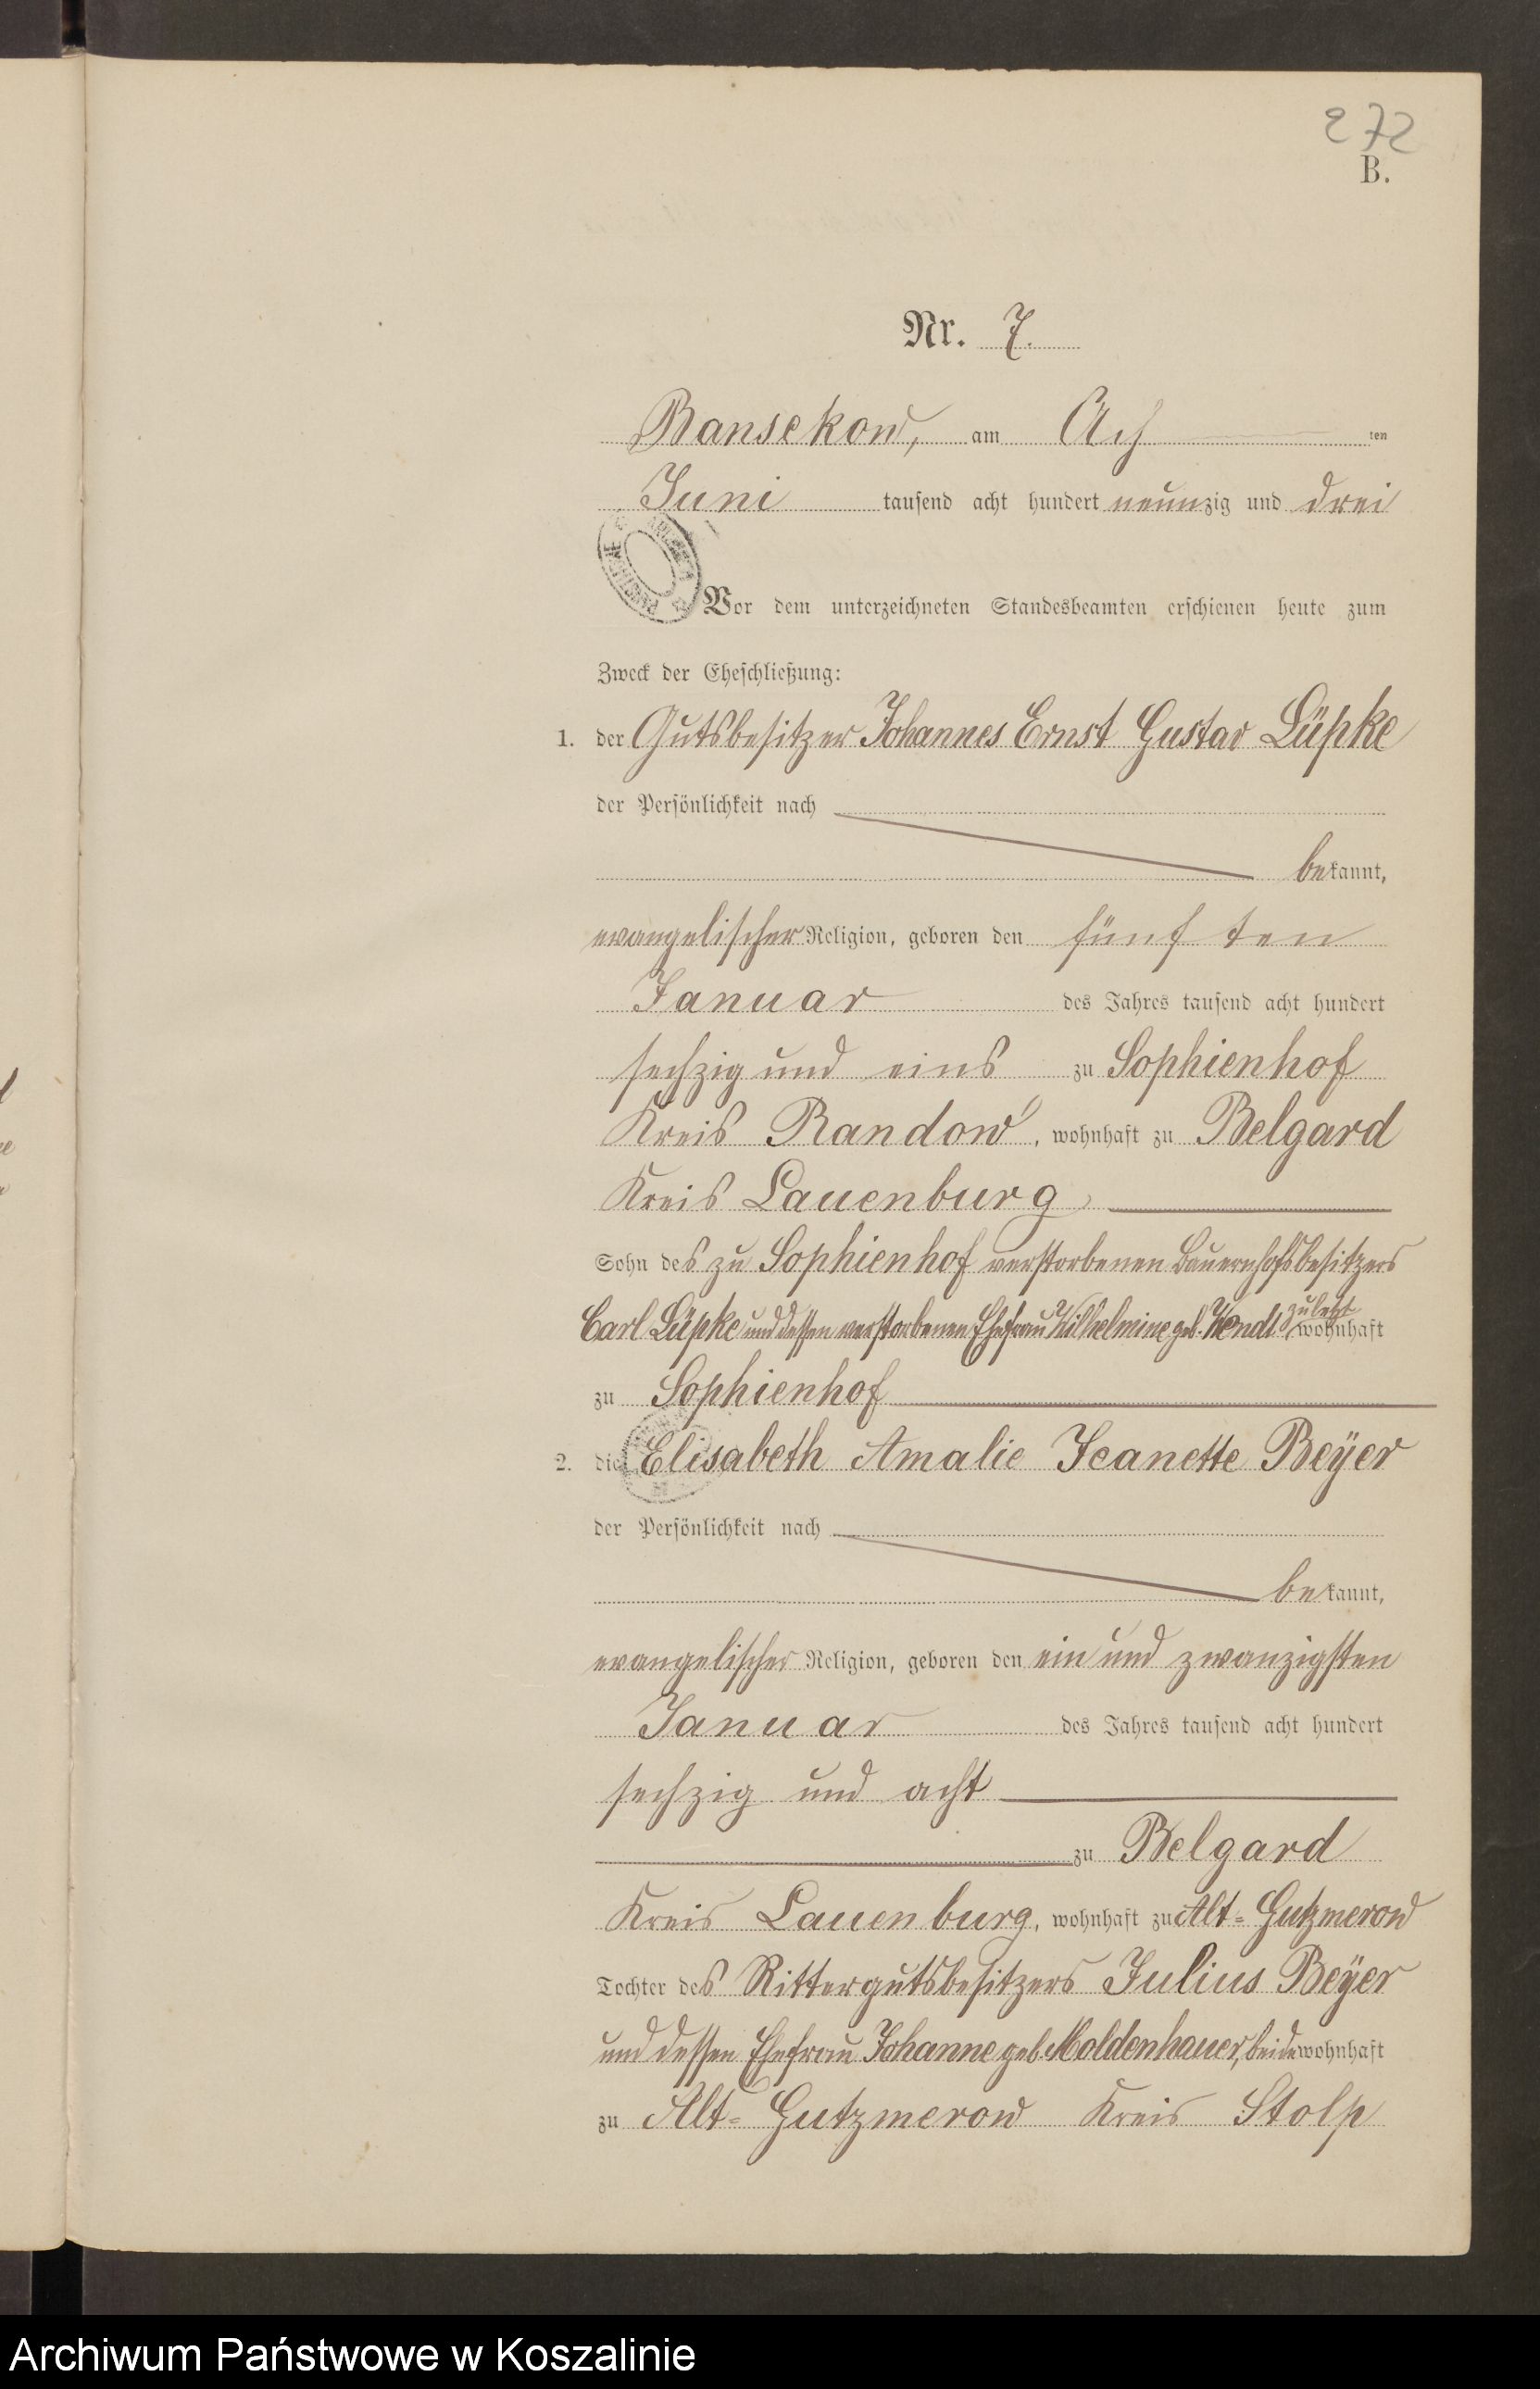 272
B.
Nr. 7.
Bansekow, am Ach ten
Juni tausend acht hundert neunzig und drei
Vor dem unterzeichneten Standesbeamten erschienen heute zum
Zweck der Eheschließung:
1. der Gutsbesitzer Johannes Ernst Gustav Lüpke
der Persönlichkeit nach
bekannt,
evangelischer Religion, geboren den fünf ten
Januar des Jahres tausend acht hundert
sechzig und eins zu Sophienhof
Kreis Randow, wohnhaft zu Belgard
Kreis Lauenburg
Sohn des zu Sophienhof verstorbenen Bauernhofsbesitzers
Carl Lüpke und dessen verstorbenen Ehefrau Wilhelmine geb. Wendt zuletzt wohnhaft
zu Sophienhof
2. die Elisabeth Amalie Jeanette Beÿer
der Persönlichkeit nach
bekannt,
evangelischer Religion, geboren den ein und zwanzigsten
Januar des Jahres tausend acht hundert
sechzig und acht
zu Belgard
Kreis Lauenburg, wohnhaft zu Alt-Gutzmerow
Tochter des Rittergutsbesitzers Julius Beÿer
und dessen Ehefrau Johanne geb. Moldenhauer, beide wohnhaft
zu Alt-Gutzmerow Kreis Stolp
Archiwum Państwowe w Koszalinie